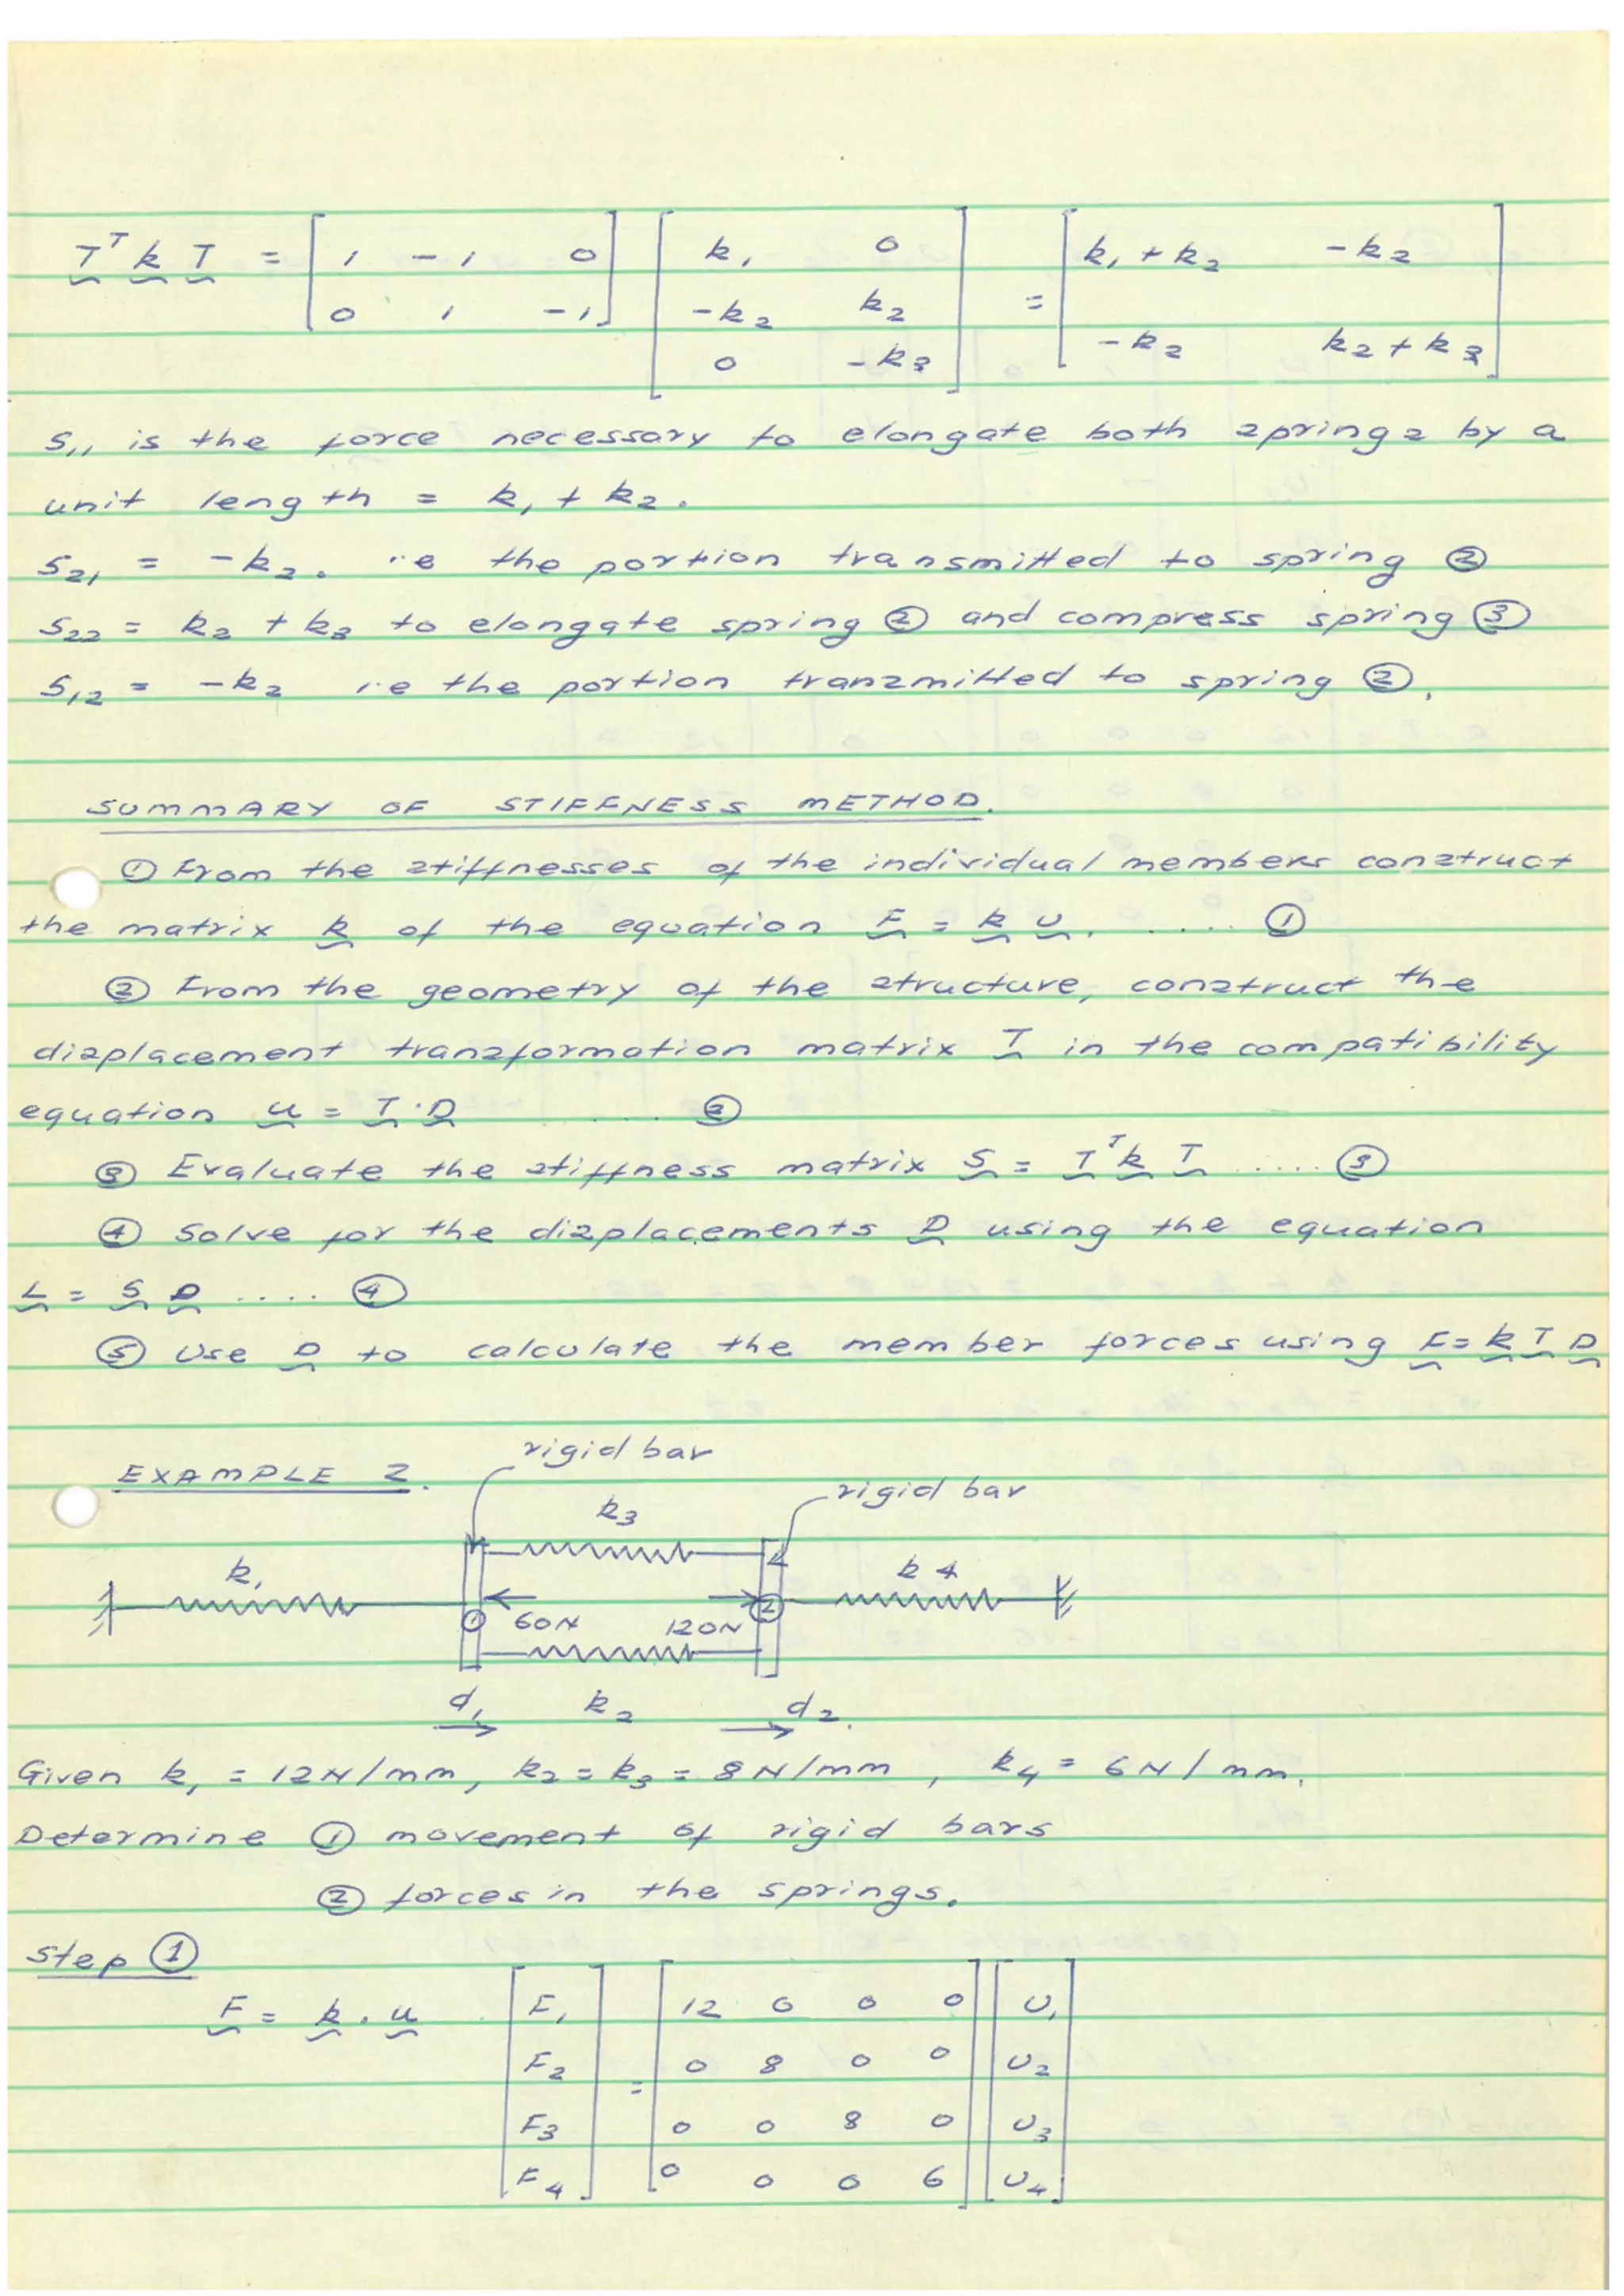 T^T k T = [ 1 -1 0 ; 0 1 -1 ] [ k₁ 0 ; -k₂ k₂ ; 0 -k₃ ] = [ k₁ + k₂ -k₂ ; -k₂ k₂ + k₃ ]
S₁₁ is the force necessary to elongate both springs by a
unit length = k₁ + k₂.
S₂₁ = -k₂. i.e the portion transmitted to spring ②
S₂₂ = k₂ + k₃ to elongate spring ② and compress spring ③
S₁₂ = -k₂ i.e the portion transmitted to spring ②.
SUMMARY OF STIFFNESS METHOD.
① From the stiffnesses of the individual members construct
the matrix k of the equation F = k U. ..... ①
② From the geometry of the structure, construct the
displacement transformation matrix T in the compatibility
equation u = T.D ..... ②
③ Evaluate the stiffness matrix S = T^T k T ..... ③
④ Solve for the displacements D using the equation
L = S D .... ④
⑤ Use D to calculate the member forces using F = k T D
EXAMPLE 2.
rigid bar
rigid bar
k₃
k₁
k₄
① 60N 120N ②
d₁ k₂ d₂.
Given k₁ = 12N/mm, k₂ = k₃ = 8N/mm, k₄ = 6N/mm.
Determine ① movement of rigid bars
② forces in the springs.
Step ①
F = k . u
[ F₁ ] [ 12 0 0 0 ] [ U₁ ]
[ F₂ ] = [ 0 8 0 0 ] [ U₂ ]
[ F₃ ] [ 0 0 8 0 ] [ U₃ ]
[ F₄ ] [ 0 0 0 6 ] [ U₄ ]